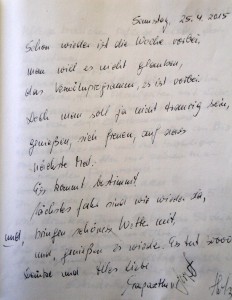 Samstag, 25.4.2015
Schon wieder ist die Woche vorbei,
man will es nicht glauben,
das Verwöhnprogramm, es ist vorbei
Doch man soll ja nicht traurig sein,
genießen, sich freuen, auf das
nächste Mal.
Es kommt bestimmt
nächstes Jahr sind wir wieder da,
und, bringen schönes Wetter mit,
und, genießen es wieder. Es tut sooooo
und Alles Liebe